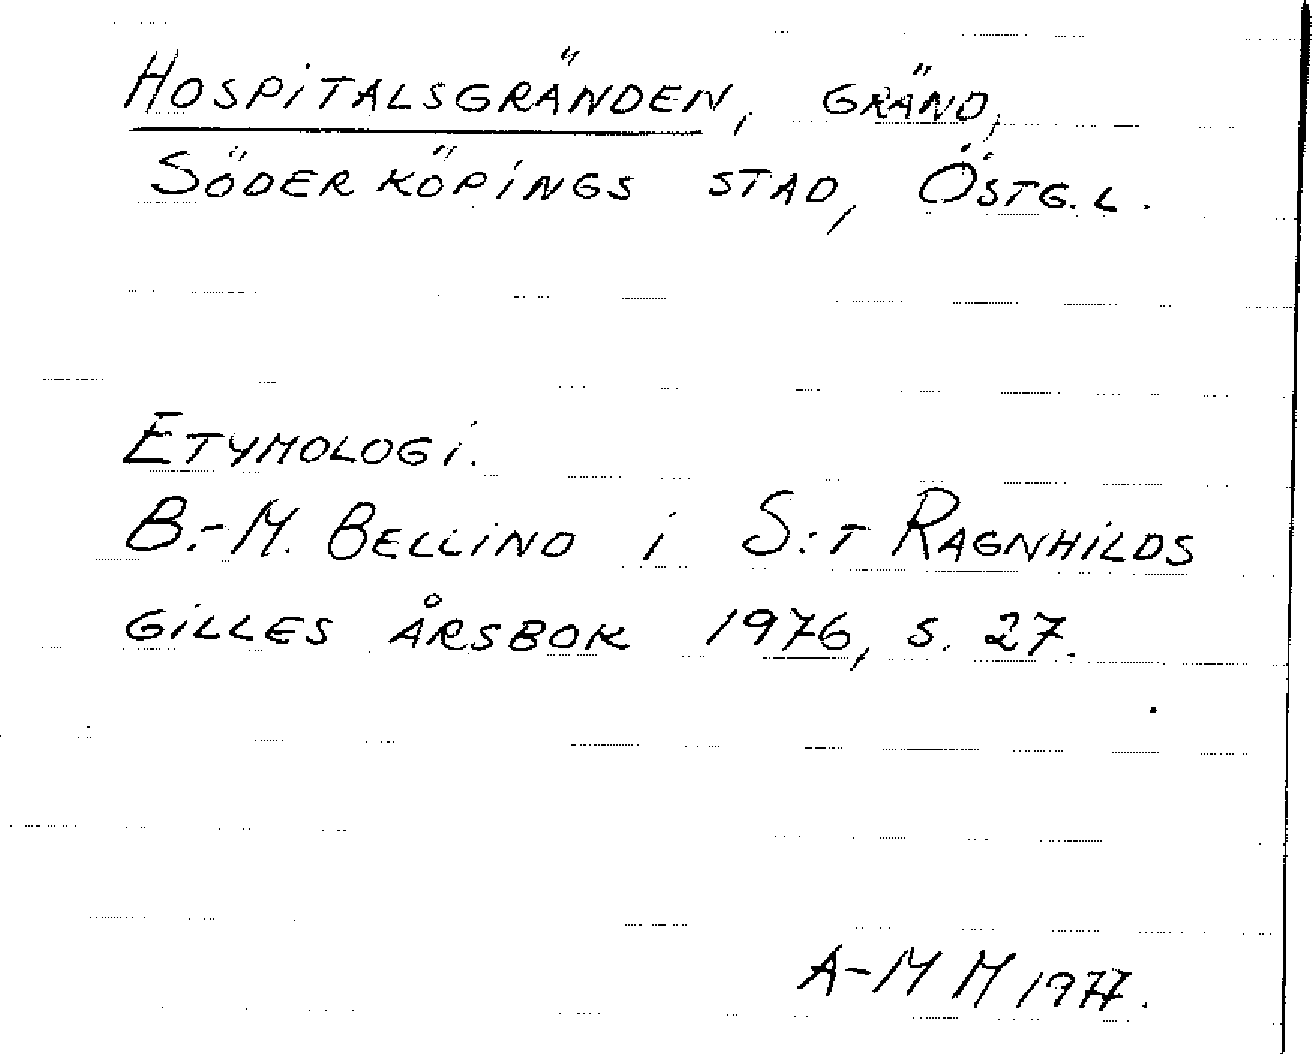 Hospitalsgränden, gränd,
Söderköpings stad, Östg.l.
Etymologi.
B.-M. Bellino i S:t Ragnhilds
gilles årsbok 1976, s. 27.
A-M M 1977.